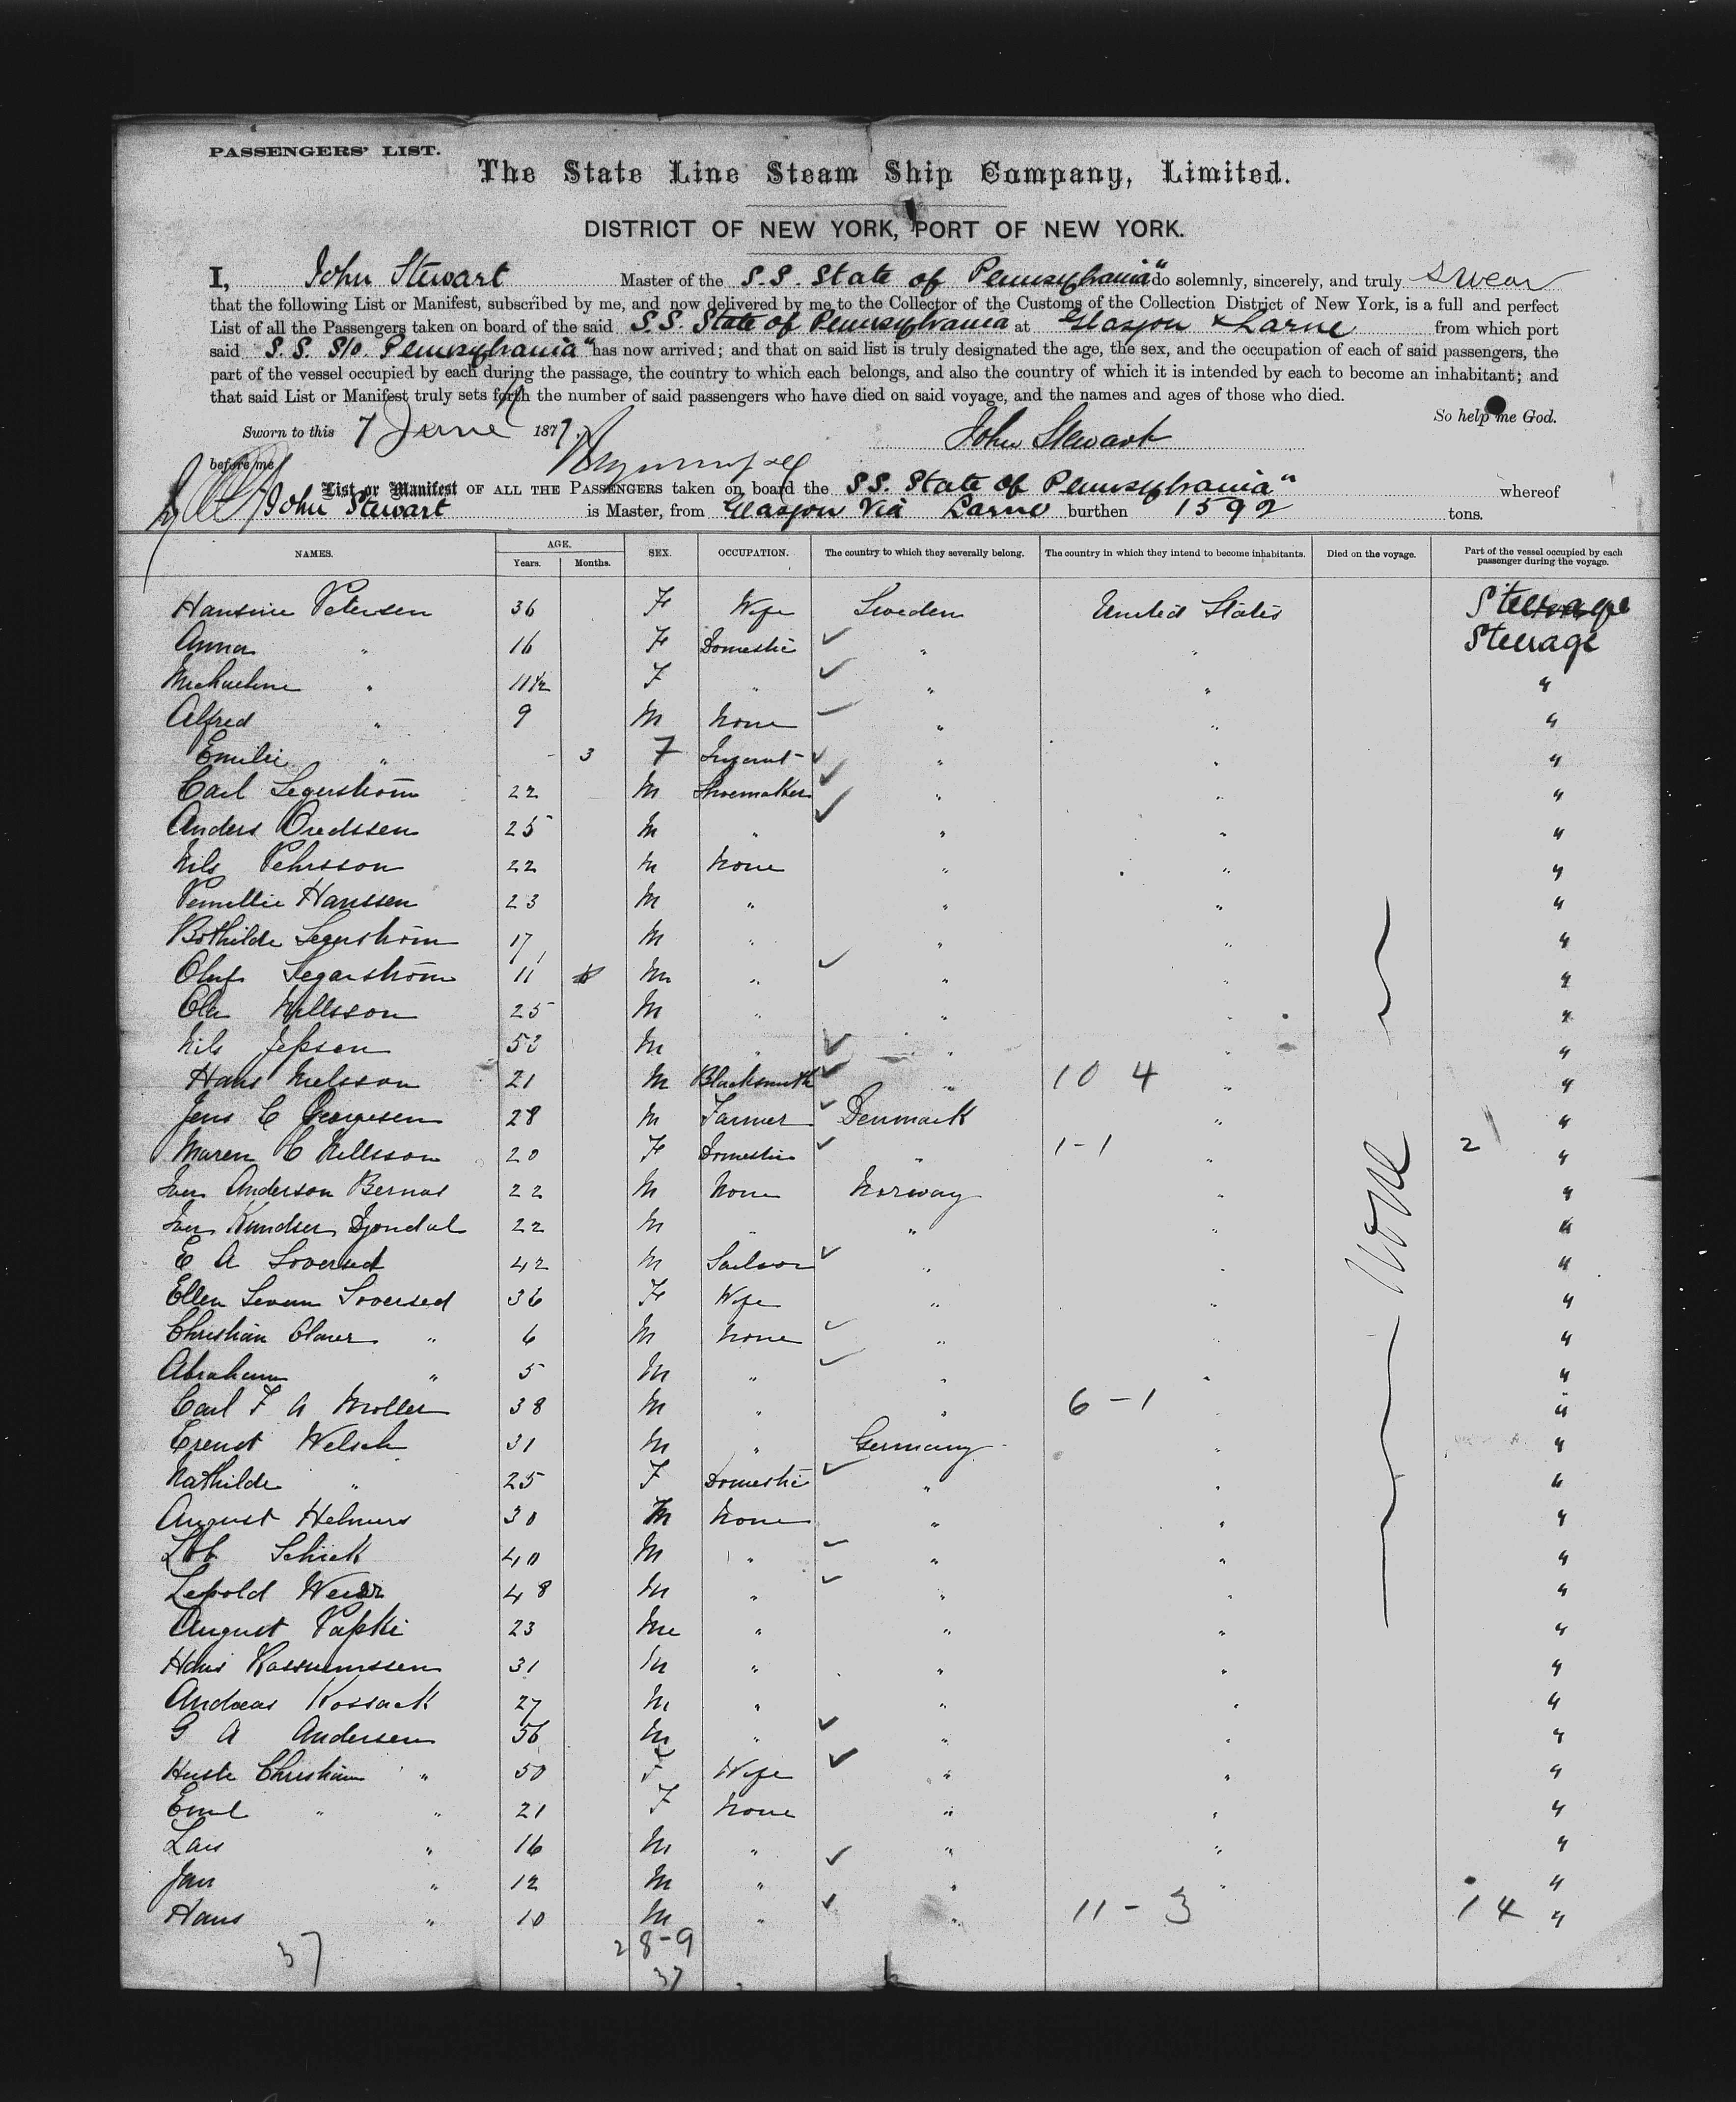 PASSENGERS' LIST.
The State Line Steam Ship Company, Limited.
DISTRICT OF NEW YORK, PORT OF NEW YORK.
I, John Stewart Master of the S.S. State of Pennsylvania" do solemnly, sincerely, and truly swear
that the following List or Manifest, subscribed by me, and now delivered by me to the Collector of the Customs of the Collection District of New York, is a full and perfect
List of all the Passengers taken on board of the said S.S. State of Pennsylvania at Glasgow & Larne from which port
said S.S. S/o. Pennsylvania" has now arrived; and that on said list is truly designated the age, the sex, and the occupation of each of said passengers, the
part of the vessel occupied by each during the passage, the country to which each belongs, and also the country of which it is intended by each to become an inhabitant; and
that said List or Manifest truly sets forth the number of said passengers who have died on said voyage, and the names and ages of those who died.
So help me God.
Sworn to this 7 June 1877. John Stewart
before me
List or Manifest OF ALL THE PASSENGERS taken on board the SS. State of Pennsylvania" whereof
John Stewart is Master, from Glasgow Via Larne burthen 1592 tons.
NAMES. AGE. SEX. OCCUPATION. The country to which they severally belong. The country in which they intend to become inhabitants. Died on the voyage. Part of the vessel occupied by each passenger during the voyage.
Years. Months.
Hansine Petersen 36 F Wife Sweden United States Steerage
Anna " 16 F Domestic " " Steerage
Michaeline " 11½ F " " " "
Alfred " 9 M None " " "
Emilie " 3 F Infant " " "
Carl Segerström 22 M Shoemaker " " "
Anders Oredssen 25 M " " " "
Nils Pehrsson 22 M None " " "
Pernellie Hanssen 23 M " " " "
Bothilde Segerström 17 M " " " "
Oluf Segarström 11 M " " " "
Ola Nillsson 25 M " " " "
Nils Jepsen 53 M " " " "
Hans Nielsson 21 M Blacksmith " 10 4 " "
Jens C Georgesen 28 M Farmer Denmark " "
Maren C Nillsson 20 F Domestic " 1-1 " 2 "
Iver Anderson Bernas 22 M None Norway " "
Iver Knudsen Djondal 22 M " " " "
E A Soversed 42 M Sailor " " "
Ellen Soversed 36 F Wife " " "
Christian Olaver " 6 M None " " "
Abraham " 5 M " " " "
Carl F A Moller 38 M " " 6-1 " "
None
Erenst Welsch 31 M " Germany " "
Mathilde " 25 F Domestic " " "
August Helmers 30 M None " " "
Lob Schick 40 M " " " "
Lepold Weisr 48 M " " " "
August Papki 23 M " " " "
Hans Rassmussen 31 M " " " "
Andreas Kossack 27 M " " " "
G A Andersen 56 M " " " "
Christian " 50 F Wife " " "
Emil " " 21 F None " " "
Lars " 16 M " " " "
Jan " 12 M " " " "
Hans " 10 M " " 11-3 14 "
37 28-9
37